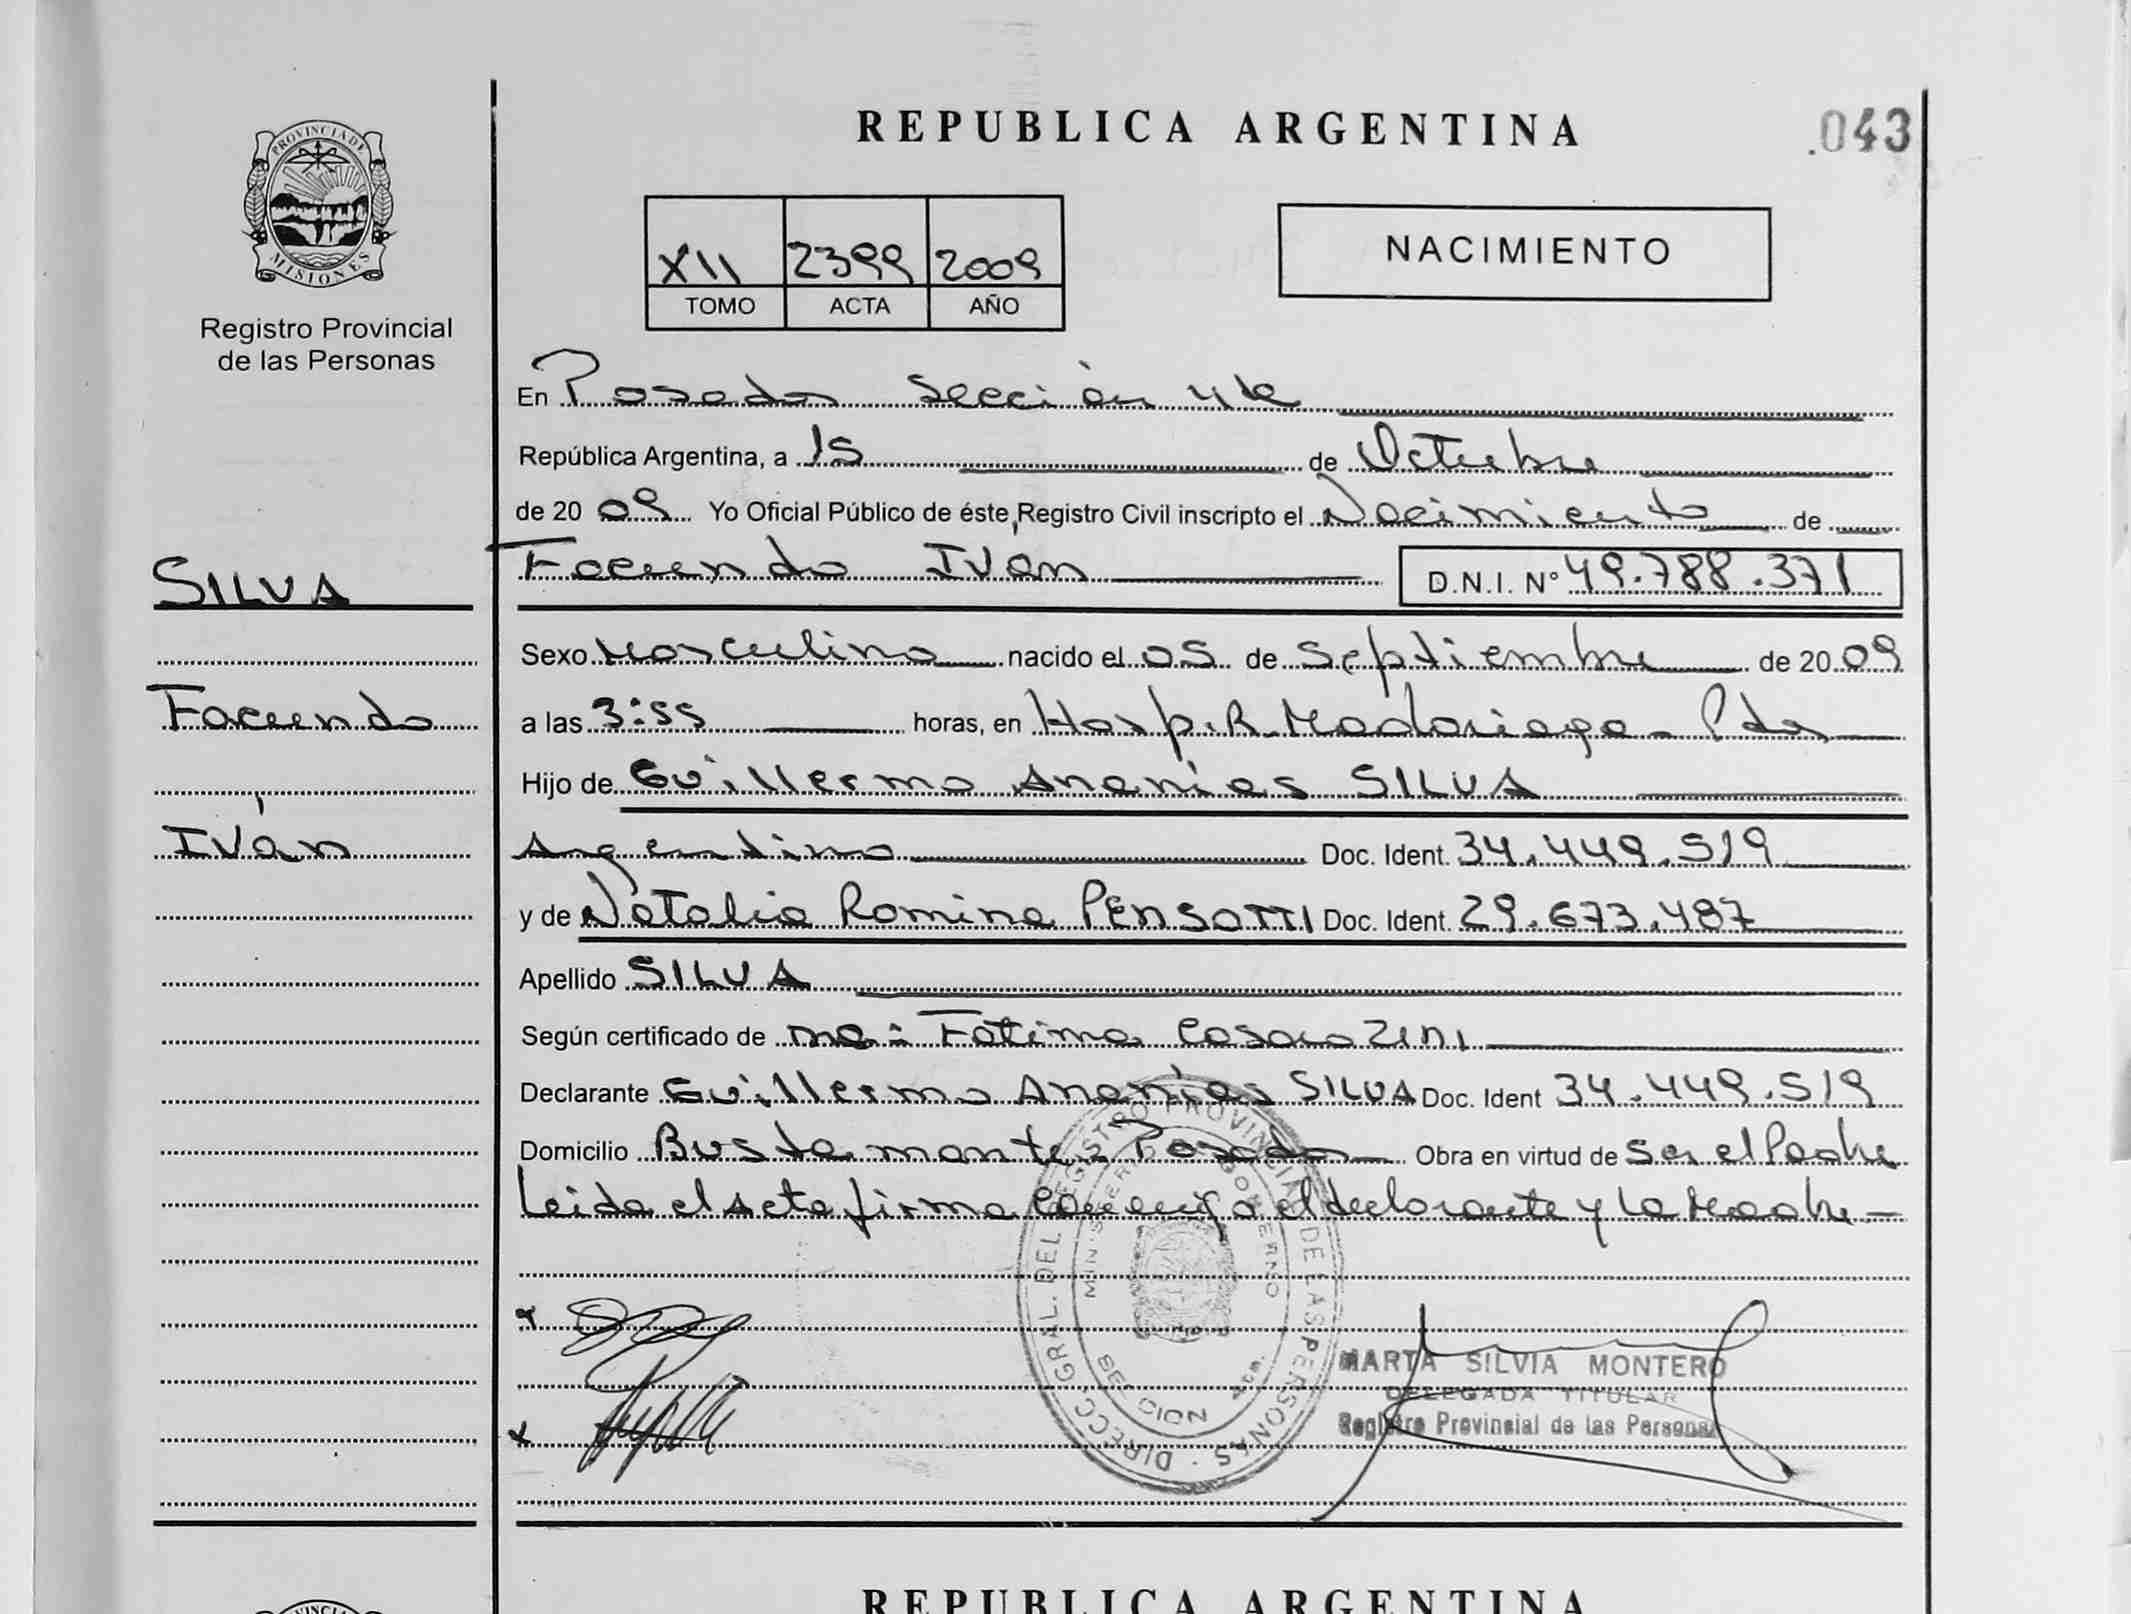 PROVINCIA DE
MISIONES
Registro Provincial
de las Personas
SILVA
Facundo
Iván
REPUBLICA ARGENTINA
.043
XII 2399 2009
TOMO ACTA AÑO
NACIMIENTO
En Posadas Sección 4ta
República Argentina, a 15 de Octubre
de 2009 Yo Oficial Público de éste Registro Civil inscripto el Nacimiento de
Facundo Iván D.N.I. Nº 49.788.371
Sexo Masculino nacido el 05 de Septiembre de 2009
a las 3:55 horas, en Hosp. R. Madariaga - Pdas
Hijo de Guillermo Ananías SILVA
Argentino Doc. Ident. 34.449.519
y de Natalia Romina PENSOTTI Doc. Ident. 29.673.487
Apellido SILVA
Según certificado de Fátima
Declarante Guillermo Ananías SILVA Doc. Ident 34.449.519
Domicilio Bustamante Posadas Obra en virtud de ser el Padre
Leida el Acta firma conmigo el declarante y la Madre -
DIRECC. GRAL. DEL REGISTRO PROVINCIAL DE LAS PERSONAS
SECCION
MARTA SILVIA MONTERO
DELEGADA TITULAR
Registro Provincial de las Personas
REPUBLICA ARGENTINA